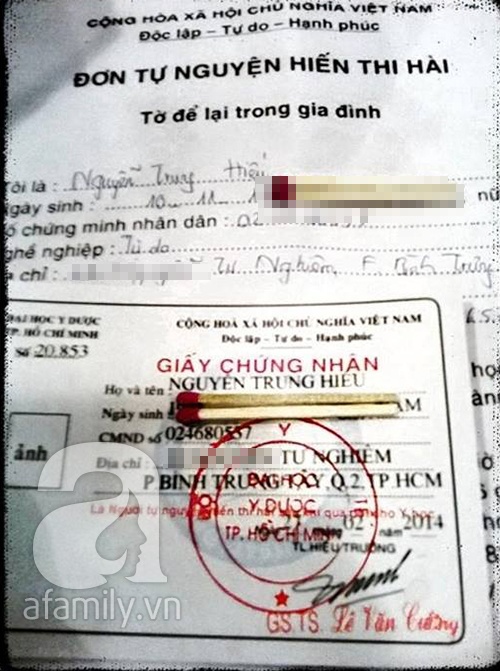 CỘNG HÒA XÃ HỘI CHỦ NGHĨA VIỆT NAM
Độc lập - Tự do - Hạnh phúc
ĐƠN TỰ NGUYỆN HIẾN THI HÀI
Tờ để lại trong gia đình
Tôi là : Nguyễn Trung Hiếu
Ngày sinh : 10 - 11 - 1 nữ
ố chứng minh nhân dân : 02
ghề nghiệp : Tự do
a chỉ : Tư Nghiêm, F. Bình Trưng
ĐẠI HỌC Y DƯỢC
TP. HỒ CHÍ MINH
Số 20.853
CỘNG HOÀ XÃ HỘI CHỦ NGHĨA VIỆT NAM
Độc lập - Tự do - Hạnh phúc
GIẤY CHỨNG NHẬN
Họ và tên : NGUYỄN TRUNG HIẾU
Ngày sinh AM
CMND số 024680557
Địa chỉ : TƯ NGHIÊM
P BÌNH TRƯNG TÂY, Q.2, TP.HCM
ảnh
Là Người tự nguyện hiến thi hài sau khi qua cho Y học
Y DƯỢC
TP. HỒ CHÍ MINH
02 năm 2014
TL.HIỆU TRƯỞNG
GS.TS. Lê Văn Cường
a
afamily.vn